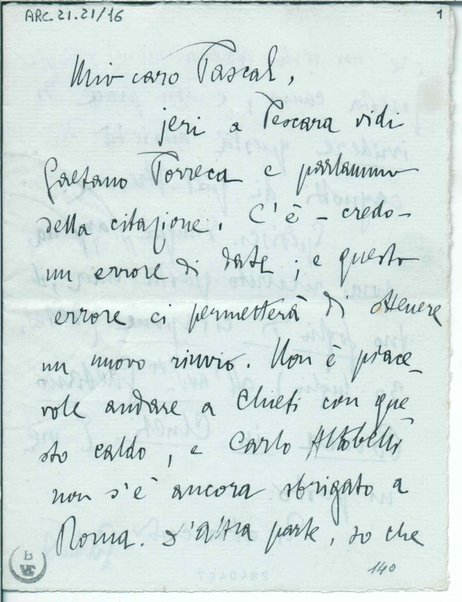 ARC.21.21/16 1
Mio caro Pascal,
jeri a Pescara vidi
Gaetano Torreca e parlammo
della citazione. C'è – credo –
un errore di date; e questo
errore ci permetterà di ottenere
un nuovo rinvio. Non è piace-
vole andare a Chieti con que-
sto caldo, e Carlo Altobelli
non s'è ancora sbrigato a
Roma. D'altra parte, so che
140